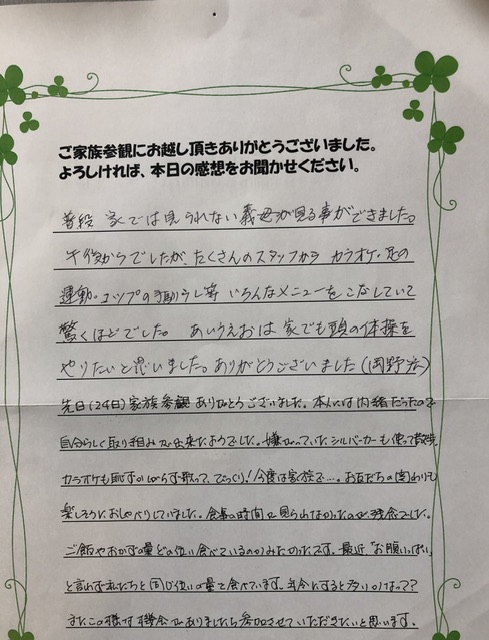 ご家族参観にお越し頂きありがとうございました。
よろしければ、本日の感想をお聞かせください。
普段 家では見られない義母が見る事ができました。
午後からでしたが、たくさんのスタッフから カラオケ・足の
運動。コップの手助うし等 いろんなメニューをこなしていて
驚くほどでした。 あいうえおは 家でも頭の体操を
やりたいと思いました。ありがとうございました(岡野 宏)
先日(24日)家族参観ありがとうございました。本人には内緒だったので
自分らしく取り組みが出来たようでした。嫌がっていたシルバーカーも使って散歩、
カラオケも恥ずかしがらず歌って、びっくり!今度は家族で…。お友だちの関わりも
楽しそうにおしゃべりしていました。食事の時間が見られなかったのが残念でした。
ご飯やおかずの量どの位い食べているのかみたかったです。最近、「お腹いっぱい」
と言わず私たちと同じ位いの量で食べています。年令にすると多いのかなって?
またこの様な機会がありましたら参加させていただきたいと思います。